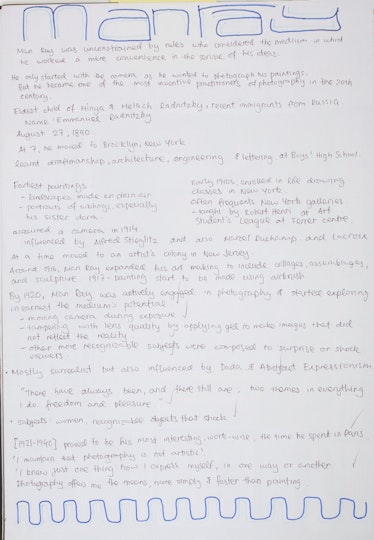 man ray
Man Ray was unconstrained by rules who considered the medium in which
he worked a mere convenience in the service of his ideas.
He only started with the camera as he wanted to photograph his paintings.
But he became one of the most inventive practitioners of photography in the 20th
century.
Eldest child of Minya & Melach Radnitzky, recent immigrants from Russia.
Name: Emmanuel Radnitzky
August 27, 1890.
At 7, he moved to Brooklyn, New York
learnt draftmanship, architecture, engineering & lettering at Boys' High School.
Earliest paintings
- landscapes made en plein air
- portraits of siblings, especially
his sister Dora.
Early 1910s, enrolled in life drawing
classes in New York.
Often frequents New York galleries
- taught by Robert Henri at Art
Student's League at Ferrer centre.
acquired a camera in 1914
influenced by Alfred Stieglitz and also Marcel Duchamp and Lacroix
At a time moved to an artist's colony in New Jersey
Around 1916, Man Ray expanded his art making to include collages, assemblages,
and sculpture 1917 - painting start to be made using airbrush
By 1920, Man Ray was actively engaged in photography & started exploring
in earnest the medium's potential
- moving camera during exposure
- tampering with lens quality by applying gel to make images that did
not reflect the reality
- other more recognizable subjects were composed to surprise or shock
viewers
• Mostly surrealist but also influenced by Dada & Abstract Expressionism
"There have always been, and there still are, two themes in everything
I do: freedom and pleasure"
• subjects: women, recognizable objects that shock
[1921-1940] proved to be his most interesting, work-wise, the time he spent in Paris.
'I maintain that photography is not artistic'.
'I know just one thing how I express myself, in one way or another
Photography offers me the means, more simply & faster than painting.